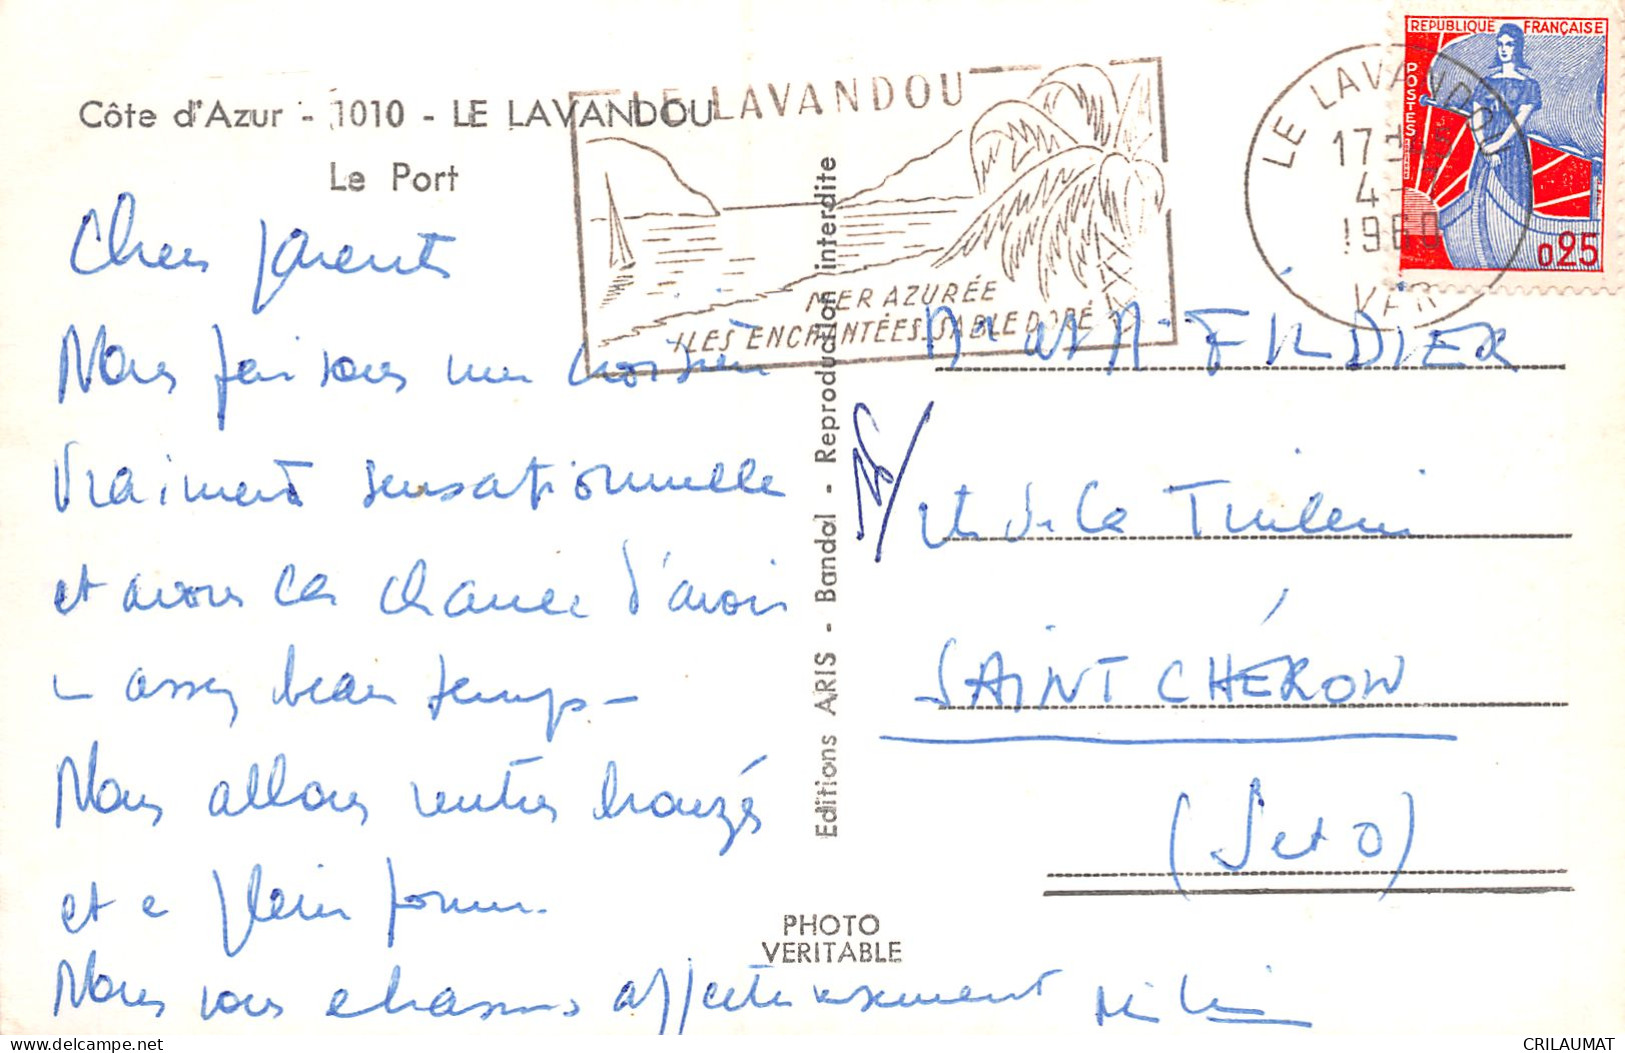 Côte d'Azur - 1010 - LE LAVANDOU
Le Port
LE LAVANDOU
MER AZURÉE
ILES ENCHANTÉES. SABLE DORÉ
LE LAVANDOU
17
4-7
196
VAR
REPUBLIQUE FRANÇAISE
POSTES
0,25
Chers parents
Nous faisons une croisière
vraiment sensationnelle
et avons la chance d'avoir
- assez beau temps -
Nous allons rentrer bronzés
et en pleine forme.
Nous vous embrassons affectueusement
FILDIER
de la Tuilerie
SAINT CHÉRON
(S et O)
Editions ARIS - Bandol - Reproduction interdite
PHOTO
VERITABLE
CRILAUMAT